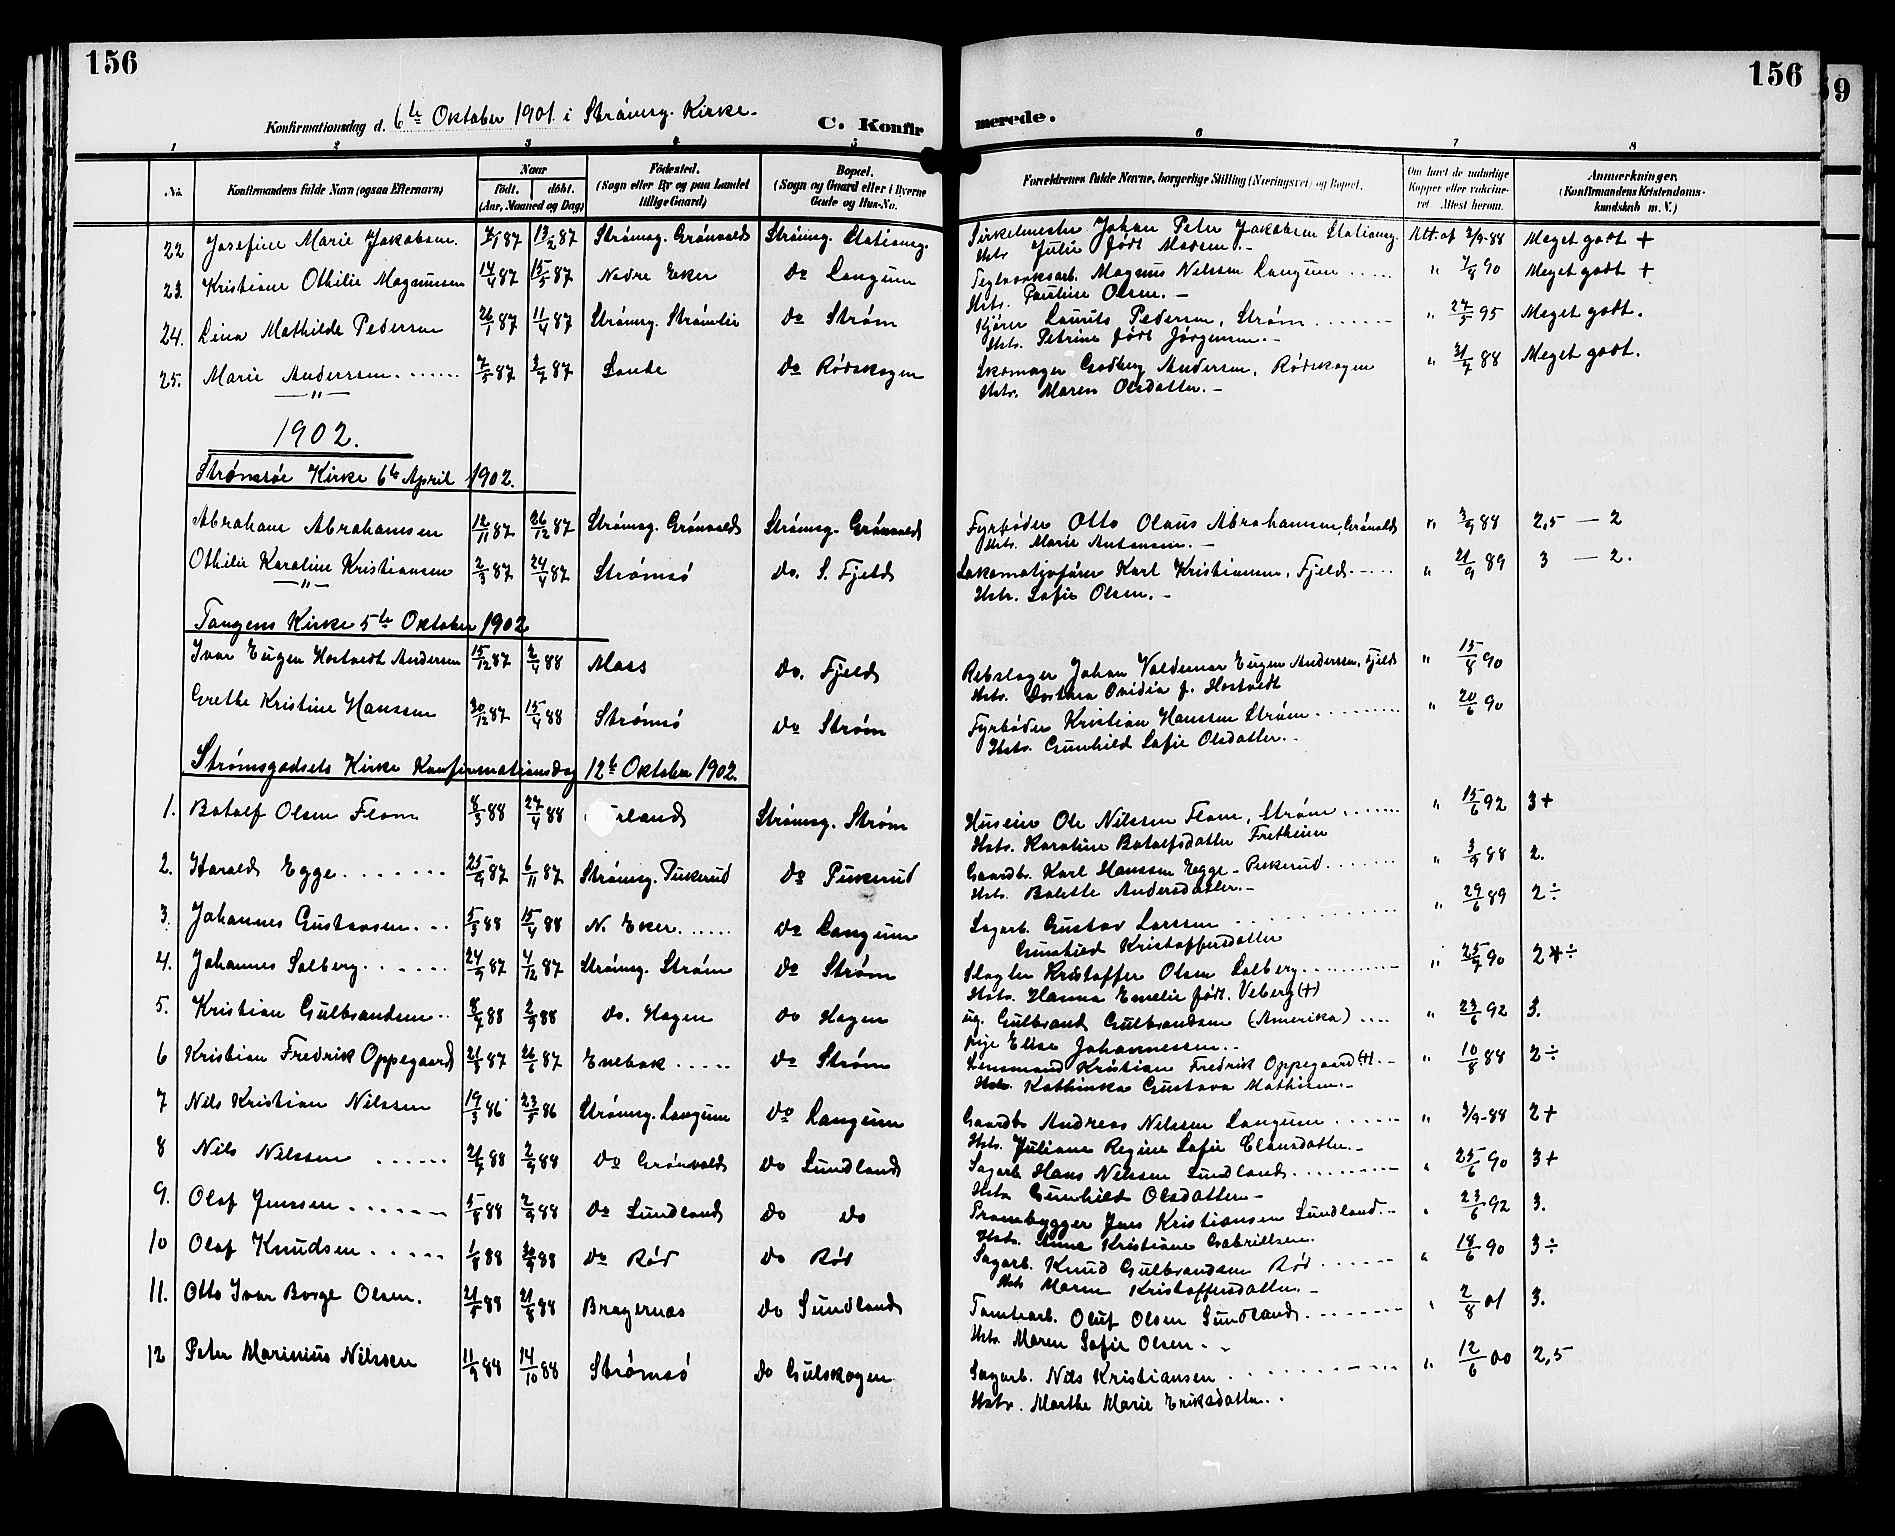 156
156
59
Konfirmationsdag d. 6te Oktober 1901 i Strømsg. Kirke.
C. Konfirmerede.
1 2 3 4 5 6 7 8
No. Konfirmandens fulde Navn (ogsaa Efternavn) Naar født. døbt. (Aar, Maaned og Dag) Fødested. (Sogn eller By og paa Landet tillige Gaard) Bopæl. (Sogn og Gaard eller i Byerne Gade og Hus-No. Forældrenes fulde Navne, borgerlige Stilling (Næringsvei) og Bopæl. Om havt de naturlige Kopper eller vakcineret. Attest herom. Anmærkninger. (Konfirmandens Kristendomskundskab m. V.)
22 Josefine Marie Jakobsen. 13/2 87 Strømsg. Grønvold Strømsg. Stationsg. Sirkelmester Johan Peter Jakobsen Stationsg. Att. af 3/9-88 Meget godt +
Hstr. Julie født Madsen. -
23. Kristiane Othilie Magnussen 14/4 87 15/5 87 Nedre Eker do Langum Teglverksarb. Magnus Nilssen Langum " 7/8 90 Meget godt +
Hstr. Pauline Olsen. -
24. Lina Mathilde Pedersen 26/1 87 11/4 87 Strømsg. Strømlie do Strøm Kjører Laurits Pedersen, Strøm " 27/5 95 Meget godt.
Hstr. Petrine født Jørgensen. -
25. Marie Anderssen. 7/5 87 3/7 87 Sande do Rødskogen Skomager Godberg Andersen, Rødskogen " 31/7 88 Meget godt.
Hstr. Maren Olsdatter. -
— " —
1902.
Strømsøe Kirke 6te April 1902.
Abraham Abrahamsen 12/11 87 26/12 87 Strømsg. Grønvold Strømsg. Grønvold Fyrbøder Otto Olaus Abrahamsen, Grønvold " 3/9 88 2,5 — 2
Hstr. Marie Antonsen. -
Othilie Karoline Kristiansen 2/3 87 24/4 87 Strømsø do. S. Fjeld Lokomotivfører Karl Kristiansen, Fjeld " 21/9 89 3 — 2.
— " — Hstr. Sofie Olsen. -
Tangens Kirke 5te Oktober 1902
Ivar Eugen Hostvedt Andersen 15/12 87 2/4 88 Moss do. Fjeld Rebslager Johan Valdemar Eugen Anderssen, Fjeld " 15/8 90
Hstr. Ovidia f. Hostvedt
Grethe Kristine Hanssen 30/12 87 15/4 88 Strømsø do Strøm Fyrbøder Kristian Hanssen Strøm " 20/6 90
Hstr. Gunhild Sofie Olsdatter. -
Strømsgodsets Kirke Konfirmationsdag 12te Oktober 1902.
1. Botolf Olsen Flom 8/3 88 27/4 88 rland Strømsg. Strøm Huseier Ole Nilssen Flom, Strøm " 15/6 92 3+
Hstr. Karoline Botolfsdatter Fretheim
2. Harald Egge 25/9 87 6/11 87 Strømsg. Pukerud do Pukerud Gaardb. Karl Hanssen Egge - Pukerud " 3/9 88 2.
Hstr. Bolette Andersdatter. -
3. Johannes Gustavsen 5/3 88 15/4 88 N. Eker do Langum Sagarb. Gustav Larssen " 29/6 89 2÷
Gunhild Kristoffersdatter
4. Johannes Solberg 24/9 87 4/12 87 Strømsg. Strøm do Strøm Slagter Kristoffer Olsen Solberg " 25/7 90 2+÷
Hstr. Hanna Emelie født. Veberg (+)
5. Kristian Gulbrandsen 2/9 88 do. Hagen do Hagen ug. Gulbrand Gulbrandsen (Amerika) " 23/6 92 3.
Pige Elise Johannessen. -
6 Kristian Fredrik Oppegaard 87 87 Enebak do Strøm Lensmand Kristian Fredrik Oppegaard (+) " 10/8 88 2÷
Hstr. Kathinka Gustava Mathisen. -
7 Nils Kristian Nilssen 19/3 86 23/5 86 Strømsg. Langum do Langum Gaardb. Andreas Nilssen Langum " 3/9-88 2+
Hstr. Juliane Regine Sofie Clausdatter. -
8 Nils Nilssen 21/7 88 2/9 88 do Grønvold do Sundland Sagarb. Hans Nilssen Sundland " 25/6 90 3+
Hstr. Gunhild Olsdatter -
9. Olaf Jenssen 5/8 88 2/9 88 do Sundland do do Prambygger Jens Kristiansen Sundland. " 23/6 92 3.
Hstr. Anne Kristiane Gabrielsen.
10 Olaf Knudsen 1/8 88 30/9 88 do Rød do Rød Sagarb. Knud Gulbrandsen Rød " 18/6 90 3÷
Hstr. Maren Kristoffersdatter. -
11. Otto Ivar Borge Olsen. 21/5 88 21/8 88 Bragernæs do Sundland Tomtearb. Oluf Olsen Sundland " 2/8 01 3.
Hstr. Maren Sofie Olsen. -
12 Peter Marinius Nilssen 11/9 88 14/10 88 Strømsø do Gulskogen Sagarb. Nils Kristiansen " 12/6 00 2,5
Hstr. Marthe Marie Eriksdatter. -